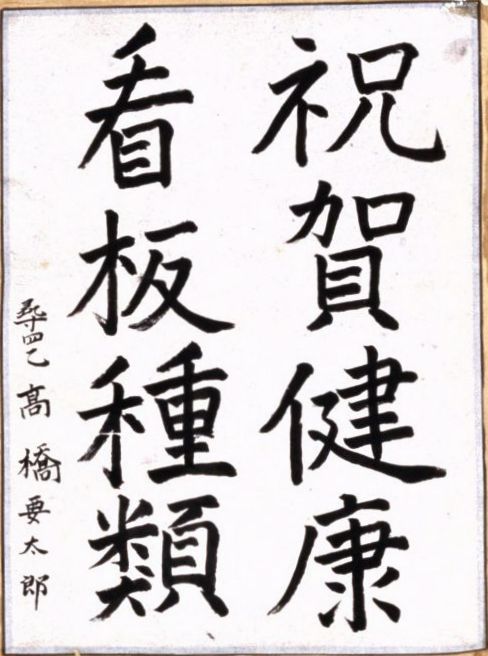 祝賀健康
看板種類
尋四乙 高橋要太郎